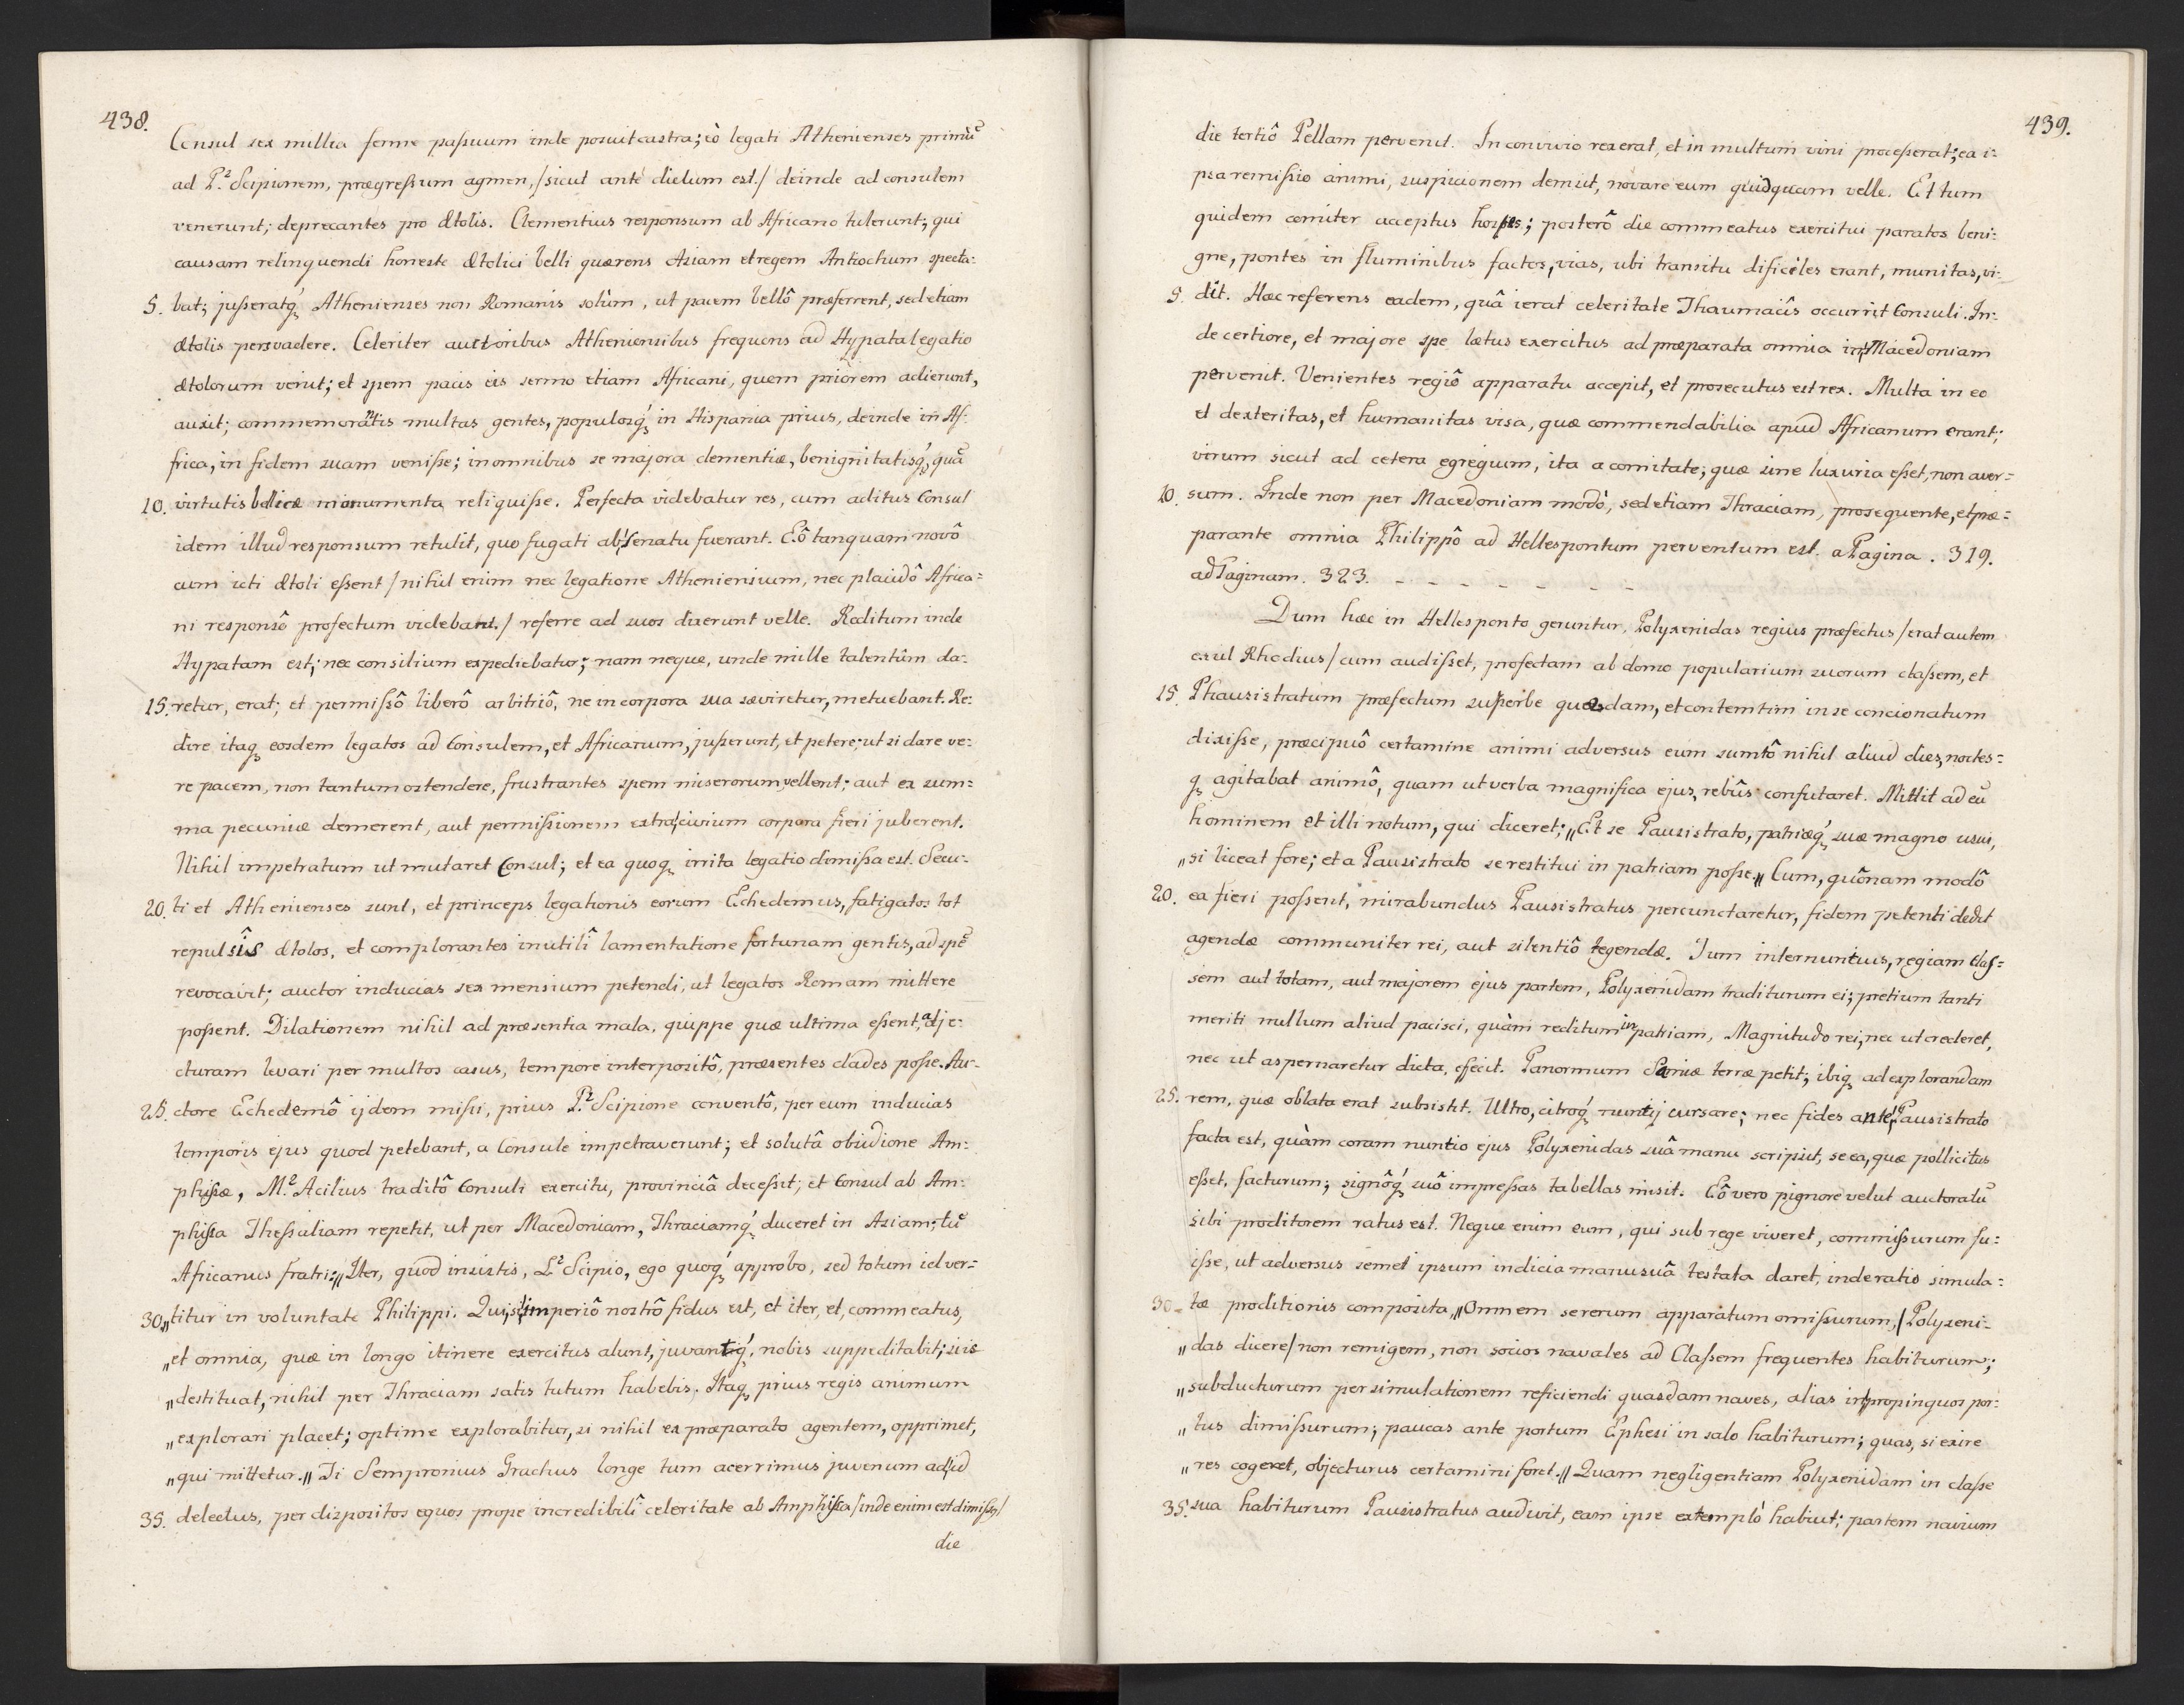 438.
Consul sex millia ferme paſsuum inde posuit castra; eò legati Athenienses primũ
ad P.² Scipionem, prægreſsum agmen, /sicut antè dictum est./ deinde ad consulem
venerunt; deprecantes pro Ætolis. Clementius responsum ab Africano tulerunt; qui
causam relinquendi honeste Ætolici belli quærens Asiam et regem Antiochum specta:
5. bat; juſseratq́ Athenienses non Romanis solùm, ut pacem bellô præferrent, sed etiam
Ætolis persvadere. Celeriter auctoribus Atheniensibus frequens ad Hypata legatio
Ætolorum venit; et spem pacis eis sermo etiam Africani, quem priorem adierunt,
auxit; commemorantis multas gentes, populosq́ in Hispania prius, deinde in Af:
frica, in fidem suam veniſse; in omnibus se majora clementiæ, benignitatisq́, quã
10. virtutis bellicæ monumenta reliquiſse. Perfecta videbatur res, cum aditus Consul
idem illud responsum retulit, quo fugati ab Senatu fuerant. Eô tanquam novô
cum icti Ætoli eſsent /nihil enim nec legatione Atheniensium, nec placidô Africa=
ni responsô profectum videbant./ referre ad suos dixerunt velle. Reditum inde
Hypatam est; nec consilium expediebatur; nam neque, unde mille talentûm da:
15. retur, erat; et permiſsô liberô arbitriô, ne in corpora sua sæviretur, metuebant. Re:
dire itaq eosdem legatos ad Consulem, et Africanum, juſserunt, et petere; ut si dare ve:
re pacem, non tantum ostendere, frustrantes spem miserorum, vellent; aut ex sum=
ma pecuniæ demerent, aut permiſsionem extra civium corpora fieri juberent.
Nihil impetratum ut mutaret Consul; et ea quoq irrita legatio dimiſsa est. Secu:
20. ti et Athenienses sunt, et princeps legationis eorum Echedemus, fatigatos tot
repulsîs Ætolos, et complorantes inutilî lamentatione fortunam gentis, ad spẽ
revocavit; auctor inducias sex mensium petendi, ut legatos Romam mittere
poſsent. Dilationem nihil ad præsentia mala, quippe quæ ultima eſsent, adje:
cturam levari per multos casus, tempore interpositô, præsentes clades poſse. Au:
25. ctore Echedemô ijdem miſsi, prius P.² Scipione conventô, per eum inducias
temporis ejus quod petebant, a Consule impetraverunt; et solutâ obsidione Am:
phiſsæ, M.² Acilius traditô Consuli exercitu, provinciâ deceſsit; et Consul ab Am:
phiſsa Theſsaliam repetit, ut per Macedoniam, Thraciamq́ duceret in Asiam; tũ
Africanus fratri: „Iter, quod insistis, L.² Scipio, ego quoq́ approbo, sed totum id ver=
30. „titur in voluntate Philippi. Qui, si imperiô nostrô fidus est, et iter, et, commeatus,
„et omnia, quæ in longo itinere exercitus alunt, juvantq́, nobis suppeditabit; si is
„destituat, nihil per Thraciam satis tutum habebis. Itaq prius regis animum
„explorari placet; optime explorabitur, si nihil ex præparato agentem, opprimet,
„qui mittetur.„ Ti Sempronius Grachus longe tum acerrimus juvenum ad id
35. delectus, per dispositos equos prope incredibilî celeritate ab Amphiſsa /inde enim est dimiſs9/
die
439.
die tertiô Pellam pervenit. In convivio rex erat, et in multum vini proceſserat; ea i:
psa remiſsio animi, suspicionem demsit, novare eum quidquam velle. Et tum
quidem comiter acceptus hospes; posterô die commeatus exercitui paratos beni:
gne, pontes in fluminibus factos, vias, ubi transitu dificiles erant, munitas, vi:
5. dit. Hæc referens eadem, quâ ierat celeritate Thaumacîs occurrit Consuli. In:
de certiore, et majore spe lætus exercitus ad præparata omnia in Macedoniam
pervenit. Venientes regiô apparatu accepit, et prosecutus est rex. Multa in eo
et dexteritas, et humanitas visa, quæ commendabilia apud Africanum erant;
virum sicut ad cetera egregium, ita a comitate, quæ sine luxuria eſset, non aver=
10. sum. Inde non per Macedoniam modò, sed etiam Thraciam, prosequente, et præ=
parante omnia Philippô ad Hellespontum perventum est. a Pagina. 319.
ad Paginam. 323. - - - - - - -
Dum hæc in Hellesponto geruntur, Polyxenidas regius præfectus /erat autem
exul Rhodius/ cum audiſset, profectam ab domo popularium suorum claſsem, et
15. Phausistratum præfectum superbe quædam, et contemtim in se concionatum
dixiſse, præcipuô certamine animi adversus eum sumtô nihil aliud dies, noctes=
q agitabat animô, quam ut verba magnifica ejus, rebûs confutaret. Mittit ad eũ
hominem et illi notum, qui diceret; „Et se Pausistrato, patriæq́ suæ magno usui,
„si liceat fore; et a Pausistrato se restitui in patriam poſse.„ Cum, quônam modô
20. ea fieri poſsent, mirabundus Pausistratus percunctaretur, fidem petenti dedit
agendæ communiter rei, aut silentiô tegendæ. Tum internuntius, regiam claſ=
sem aut totam, aut majorem ejus partem, Polyxenidam traditurum ei; pretium tanti
meriti nullum aliud pacisci, quàm reditum in patriam, Magnitudo rei, nec ut crederet,
nec ut aspernaretur dicta, effecit. Panormum Samiæ terræ petit; ibiq ad explorandam
25. rem, quæ oblata erat subsistit. Ultro, citroq́ nuntij cursare; nec fides ante Pausistrato
facta est, quàm coram nuntio ejus Polyxenidas suâ manu scripsit, se ea, quæ pollicitus
eſset, facturum; signôq́ suô impreſsas tabellas misit. Eô vero pignore velut auctoratũ
sibi proditorem ratus est. Neque enim eum, qui sub rege viveret, commiſsurum fu:
iſse, ut adversus semet ipsum indicia manu suâ testata daret, inde ratio simula=
30. tæ proditionis composita, „Omnem se rerum apparatum omiſsurum, /Polyxeni=
„das dicere/ non remigem, non socios navales ad Claſsem frequentes habiturum;
„subducturum per simulationem reficiendi quasdam naves, alias in propinquos por:
„tus dimiſsurum; paucas ante portum Ephesi in salo habiturum; quas, si exire
„res cogeret, objecturus certamini foret.„ Quam negligentiam Polyxenidam in claſse
35. sua habiturum Pausistratus audivit, eam ipse extemplò habuit; partem navium